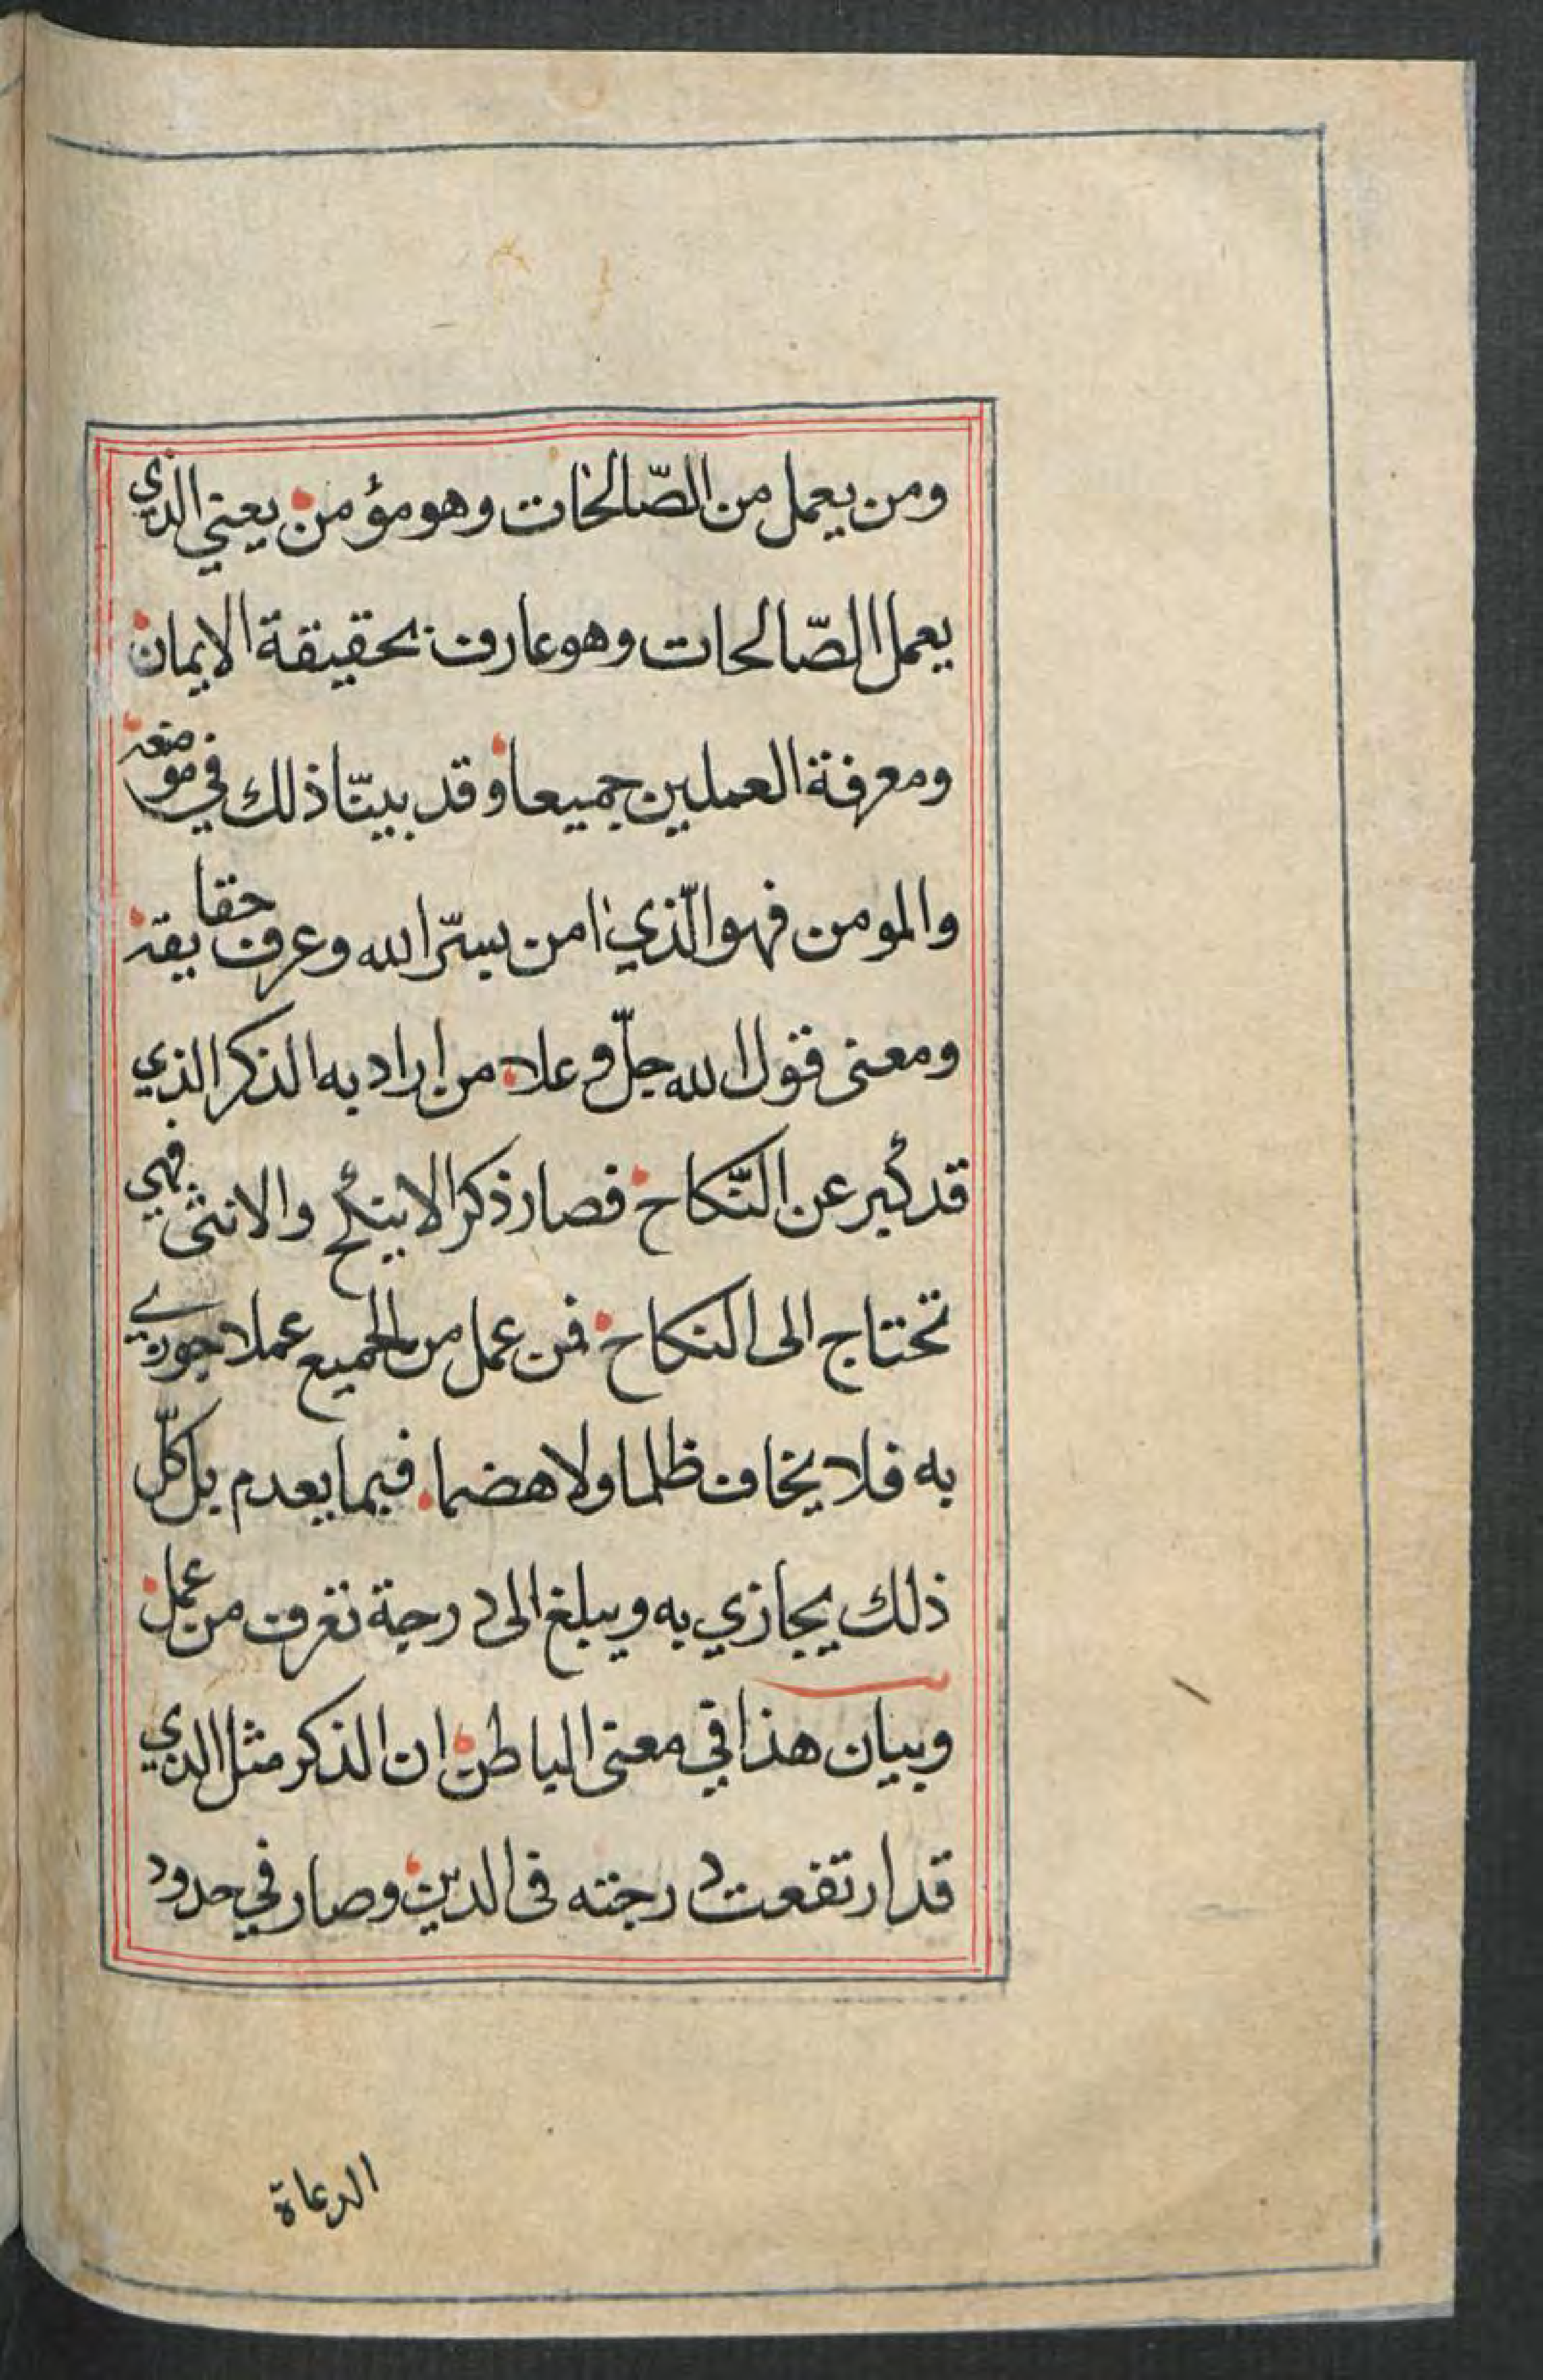 ومن يعمل من الصّالحات وهو مؤمن يعني الذي
يعمل الصّالحات وهو عارف بحقيقة الايمان
ومعرفة العملين جميعا وقد بينّا ذلك في موضعه
والمومن فهو الّذي امن بسرّ الله وعرف حقايقه
ومعنى قول الله جلّ وعلا من اراد به الذكر الذي
قد كبر عن النّكاح فصار ذكر الا ينكح والانثى فهي
تحتاج الى النكاح فمن عمل من الجميع عملا جوزي
به فلا يخاف ظلما ولا هضما فيما يعدم بل كلّ
ذلك يجازي به ويبلغ الى درجة تعرف من عمل
وبيان هذا في معنى الباطن ان الذكر مثل الذي
قد ارتفعت درجته في الدين وصار في حدود
الدعاة